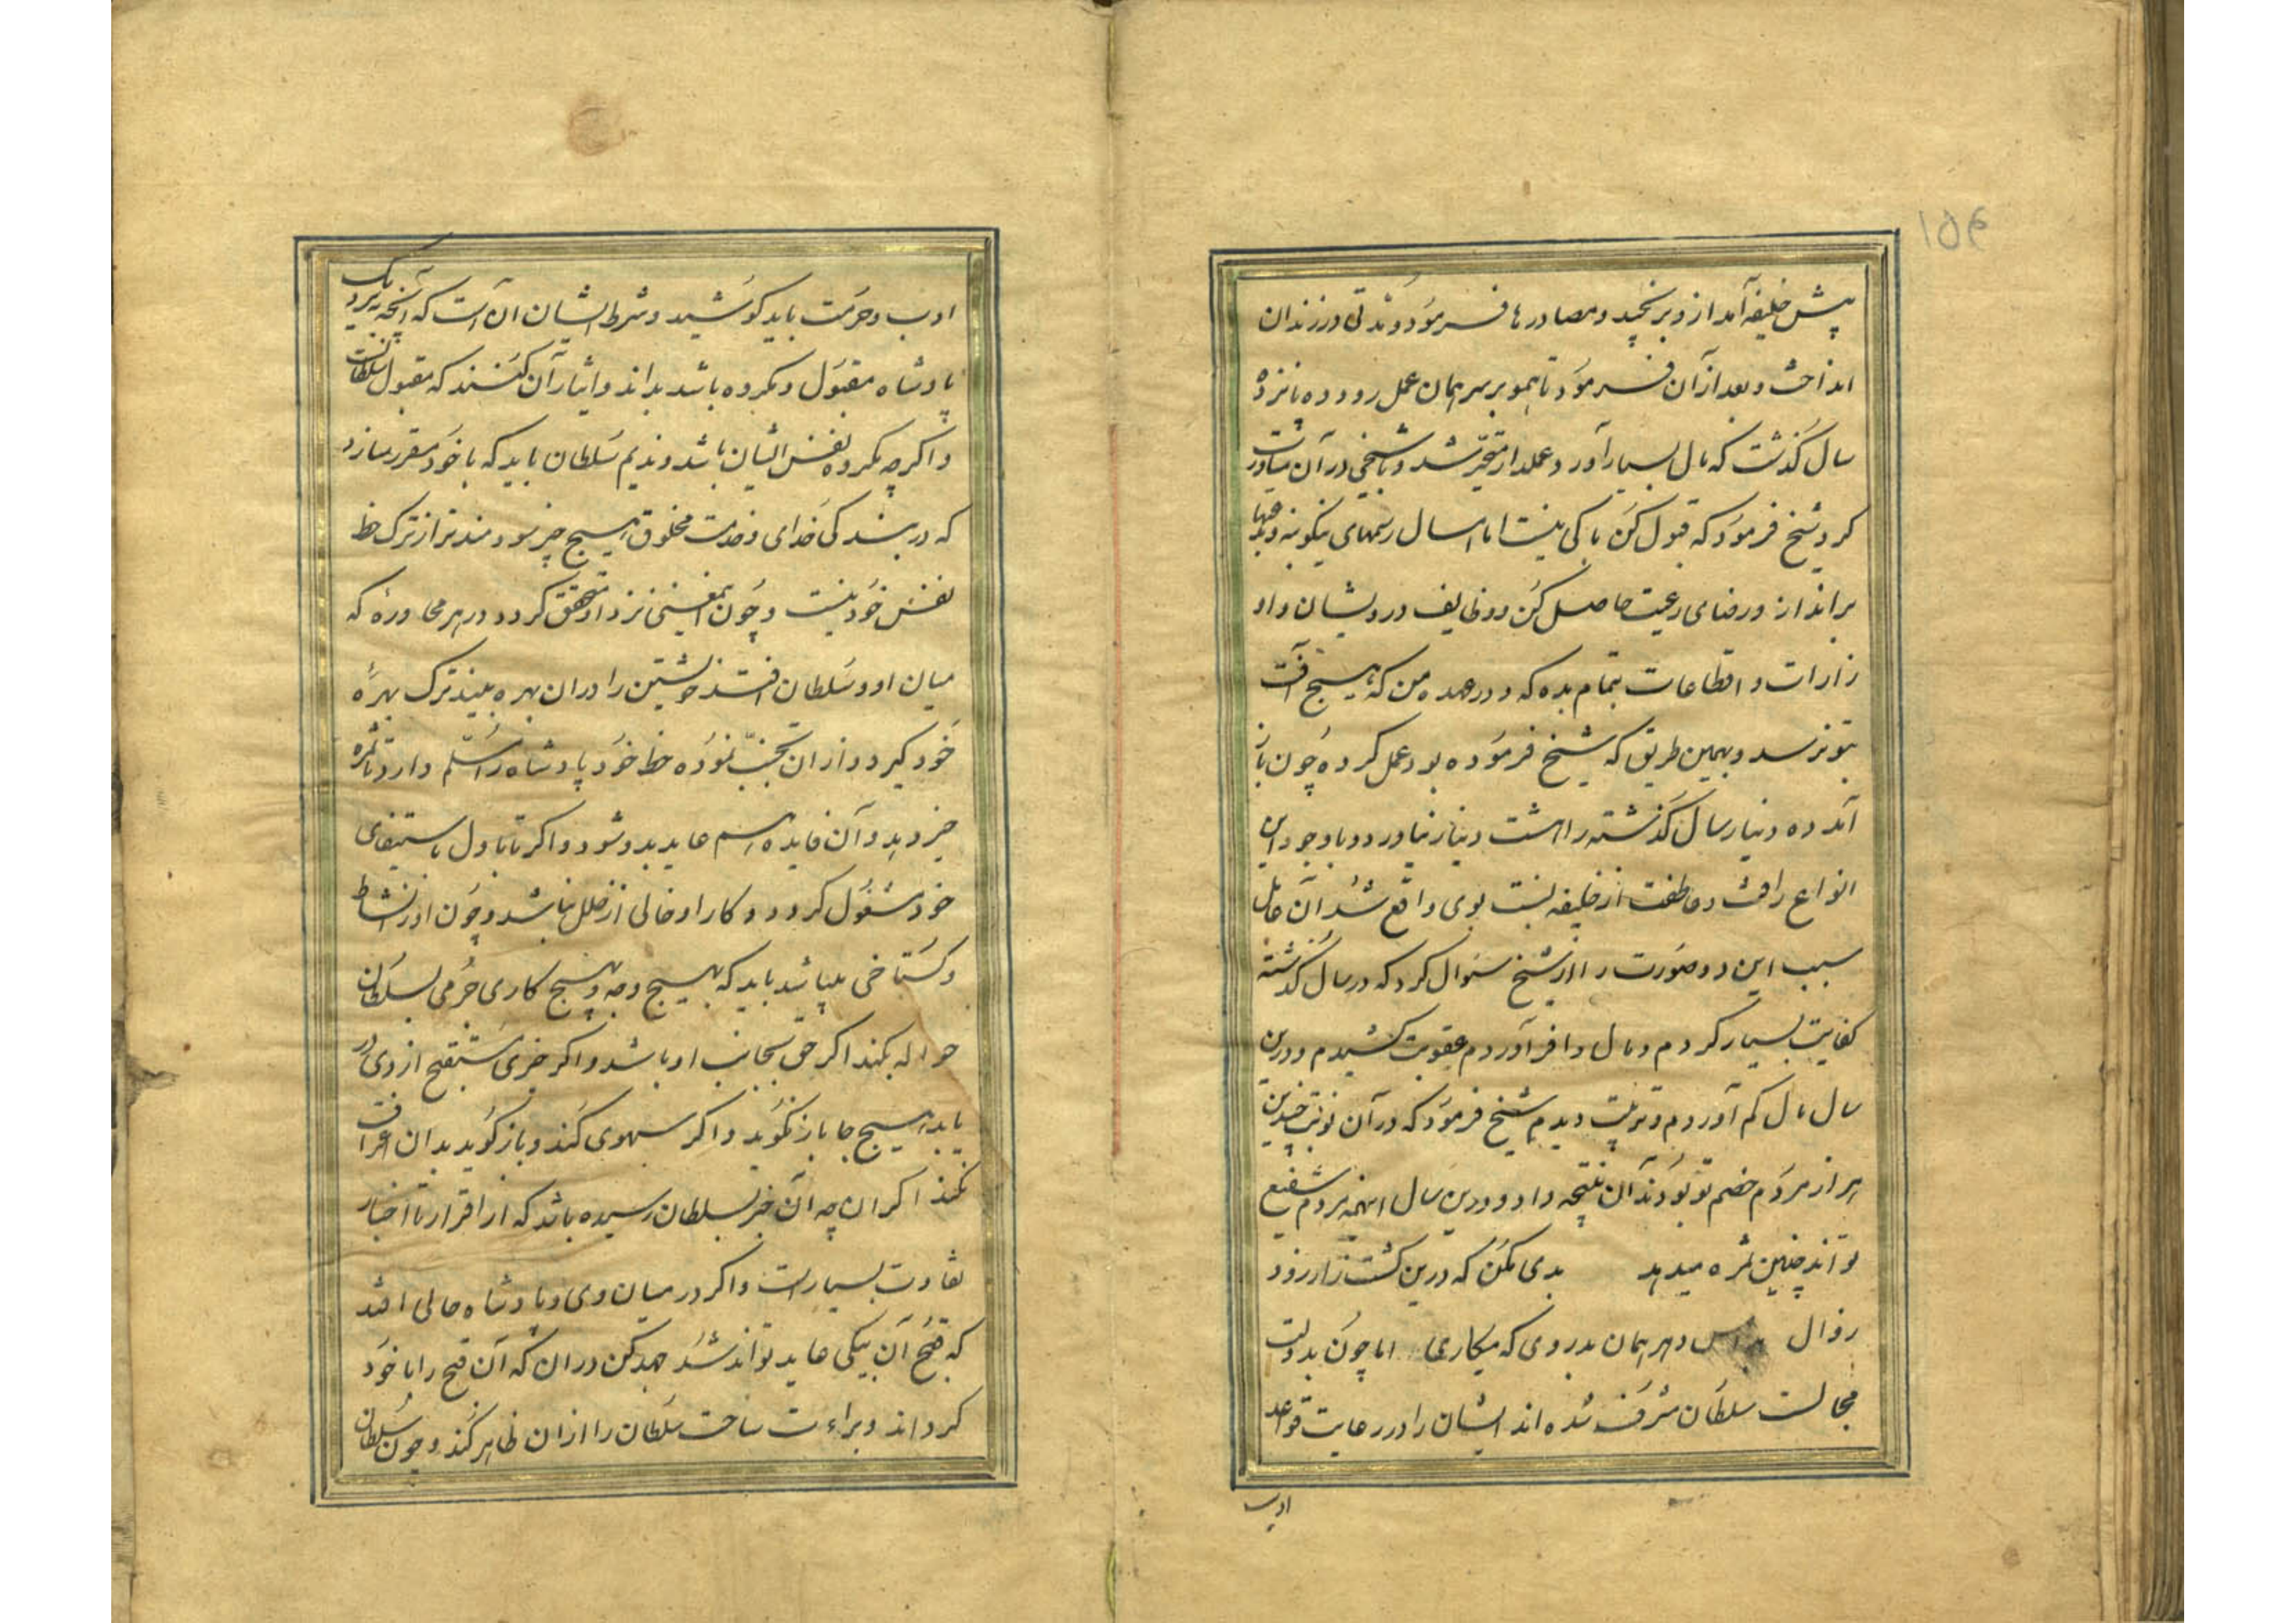 ۱۵۴
پیش خلیفه آمد از و برنجید و مصادرها فرمود و مدتی در زندان
انداخت و بعد از آن فرمود تا هم بر سر همان عمل رود ده پانزده
سال گذشت که مال بسیار آورد و عملدار متحیر شد و با شیخی در آن مشاورت
کرد شیخ فرمود که قبول کن باکی نیست اما امسال رسمهای نیکو بنه و
برانداز و رضای رعیت حاصل کن و وظایف درویشان و اد
زارات و اقطاعات بتمام بده که و در عهده من که هیچ آفت
بتو نرسد و بهمین طریق که شیخ فرموده بود عمل کرده چون باز
آمد ده دینار سال گذشته را هشت دینار نیاورد و با وجود این
انواع رافت و عاطفت از خلیفه نسبت بوی واقع شد آن عامل
سبب این دو صورت را از شیخ سئوال کرد که در سال گذشته
کفایت بسیار کردم و مال وافر آوردم عقوبت کشیدم و درین
سال مال کم آوردم و تربیت دیدم شیخ فرمود که در آن نوبت چندین
هزار مردم خصم تو بودند آن نتیجه داد و درین سال اینهمه مردم شفیع
تو اند چنین ثمره میدهد بدی مکن که درین کشت زار زود
زوال و هر همان بدروی که میکاری اما چون بدولت
مجالست سلطان مشرف شده اند ایشان را در رعایت قواعد
ادب
ادب و حرمت باید کوشید و شرط ایشان آن است که آنچه نزدیک
پادشاه مقبول و مکروه باشد بداند و ایثار آن کنند که مقبول سلطانست
و اگرچه مکروه نفس ایشان باشد و ندیم سلطان باید که با خود مقرر سازد
که در بندگی خدای و خدمت مخلوق هیچ چیز سودمندتر از ترک حظ
نفس خود نیست و چون این معنی نزد او متحقق گردد در هر محاوره که
میان او و سلطان افتد خویشتن را در آن بهره بیند ترک بهرهٔ
خود گیرد و از آن تجنب نموده حظ خود پادشاه را مسلم دارد تا ثمره
خیر دهد و آن فایده هم عاید بدو شود و اگر تا باول باستیفای
خود مشغول گردد و کار او خالی از خلل نباشد و چون او را نشاط
و گستاخی پیدا شد باید که بهیچ وجه و هیچ کاری جرمی بسلطان
حواله نکند اگر حق بجانب او باشد و اگر خبری مستقبح از وی در
یابد هیچ جا باز نگوید و اگر سهوی کند و باز گوید بدان اعتراف
نکند اگر آن چه آن خبر بسلطان رسیده باشد که از اقرار تا اخبار
تفاوت بسیار است و اگر در میان وی و پادشاه حالی افتد
که قبح آن بیکی عاید تواند شد جهد کن در آن که آن قبح را با خود
گرداند و براءت ساحت سلطان را از آن ظاهر کند و چون سلطان